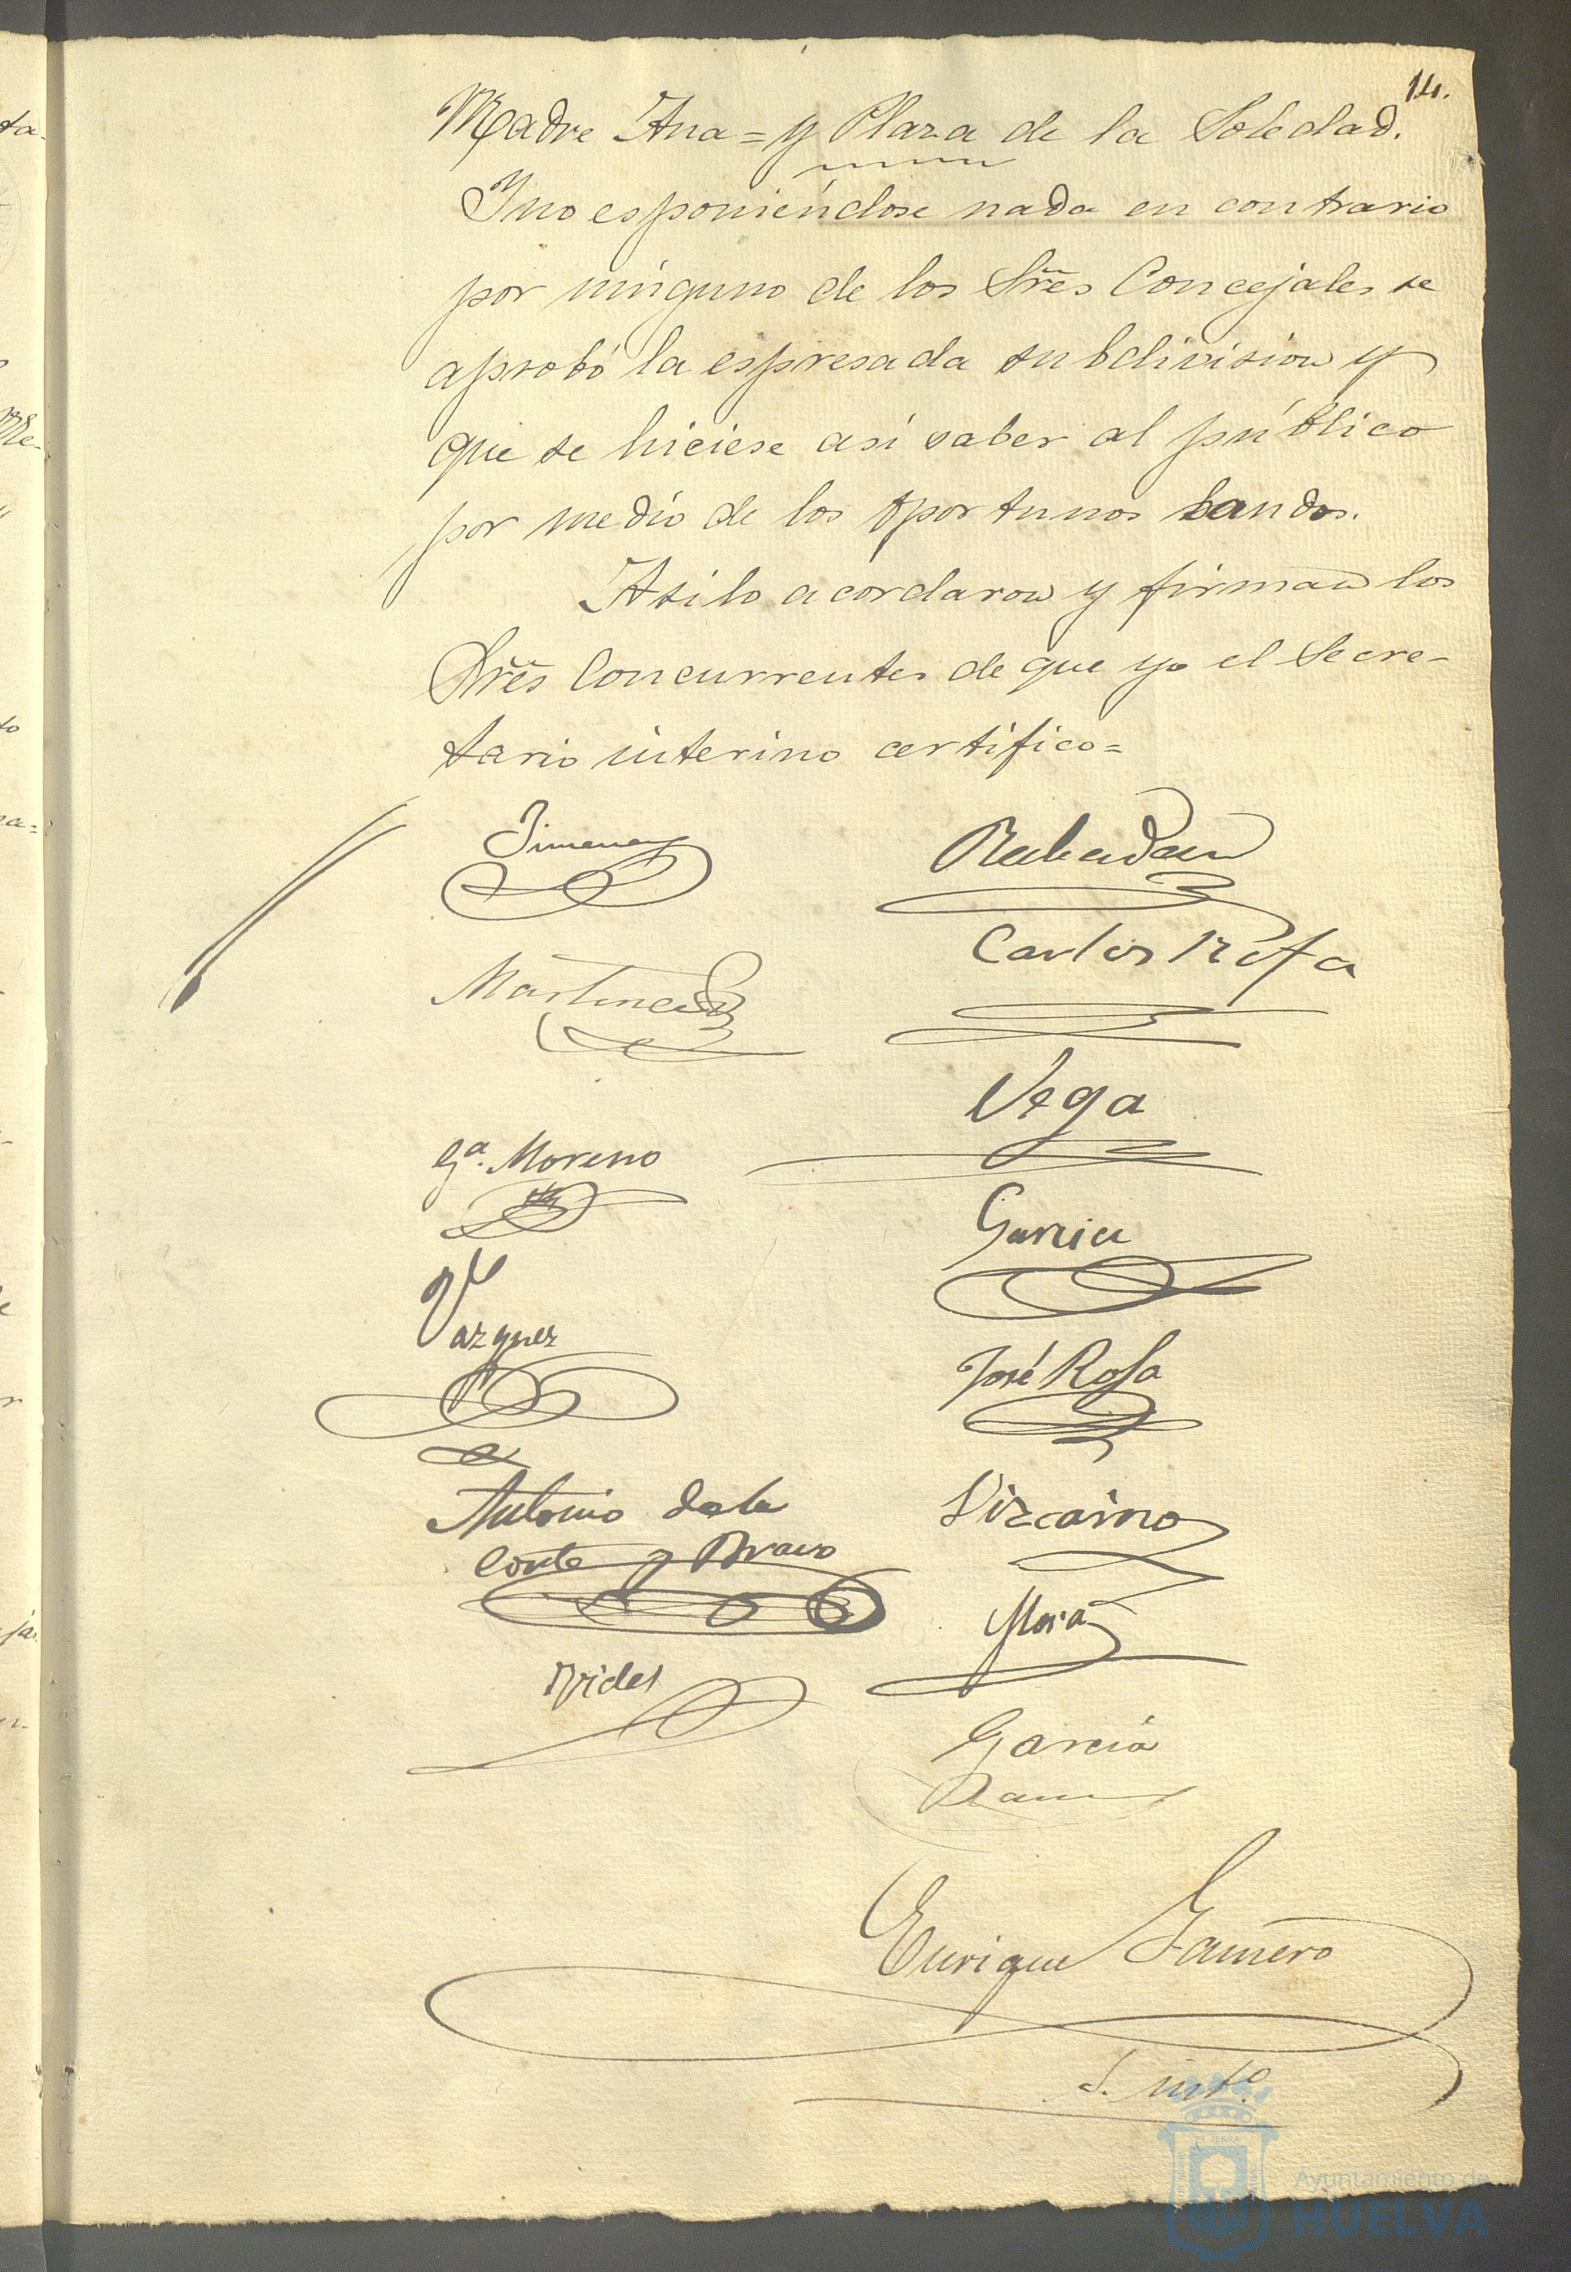 14.
Madre Ana = y Plaza de la Soledad.
Y no esponiéndose nada en contrario
por ninguno de los Sres Concejales se
aprobó la espresada subdivision y
que se hiciese asi saber al público
por medio de los oportunos bandos.
Asi lo acordaron y firman los
Sres Concurrentes de que yo el Secre-
tario interino certifico =
Jimenez
Rabadan
Carlos Rofa
Martinez
Vega
Ga. Moreno
Garcia
Vazquez
José Rofa
Antonio de la
Corte y Bravo
Vizcaino
Mora
Vides
García
Ramos
Enrique Gamero
S. into.
Ayuntamiento de
HUELVA